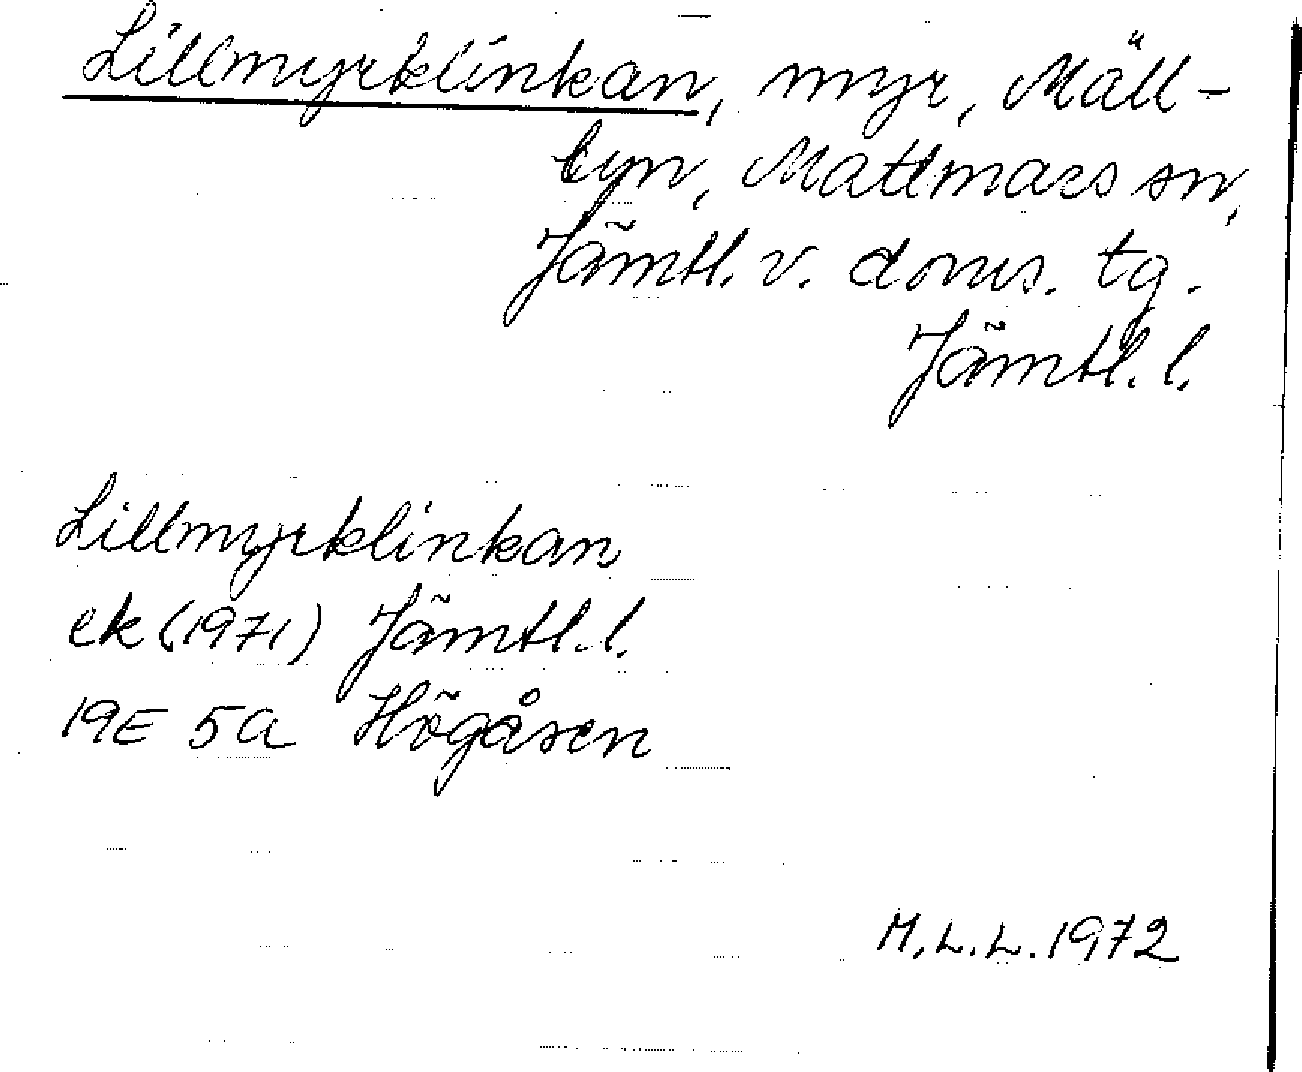 Lillmyrklinkan, myr, Mäll-
byn, Mattmars sn,
Jämtl. v. doms. tg.
Jämtl. l.
Lillmyrklinkan
ek (1971) Jämtl. l.
19E 5a Högåsen
M.L.L. 1972